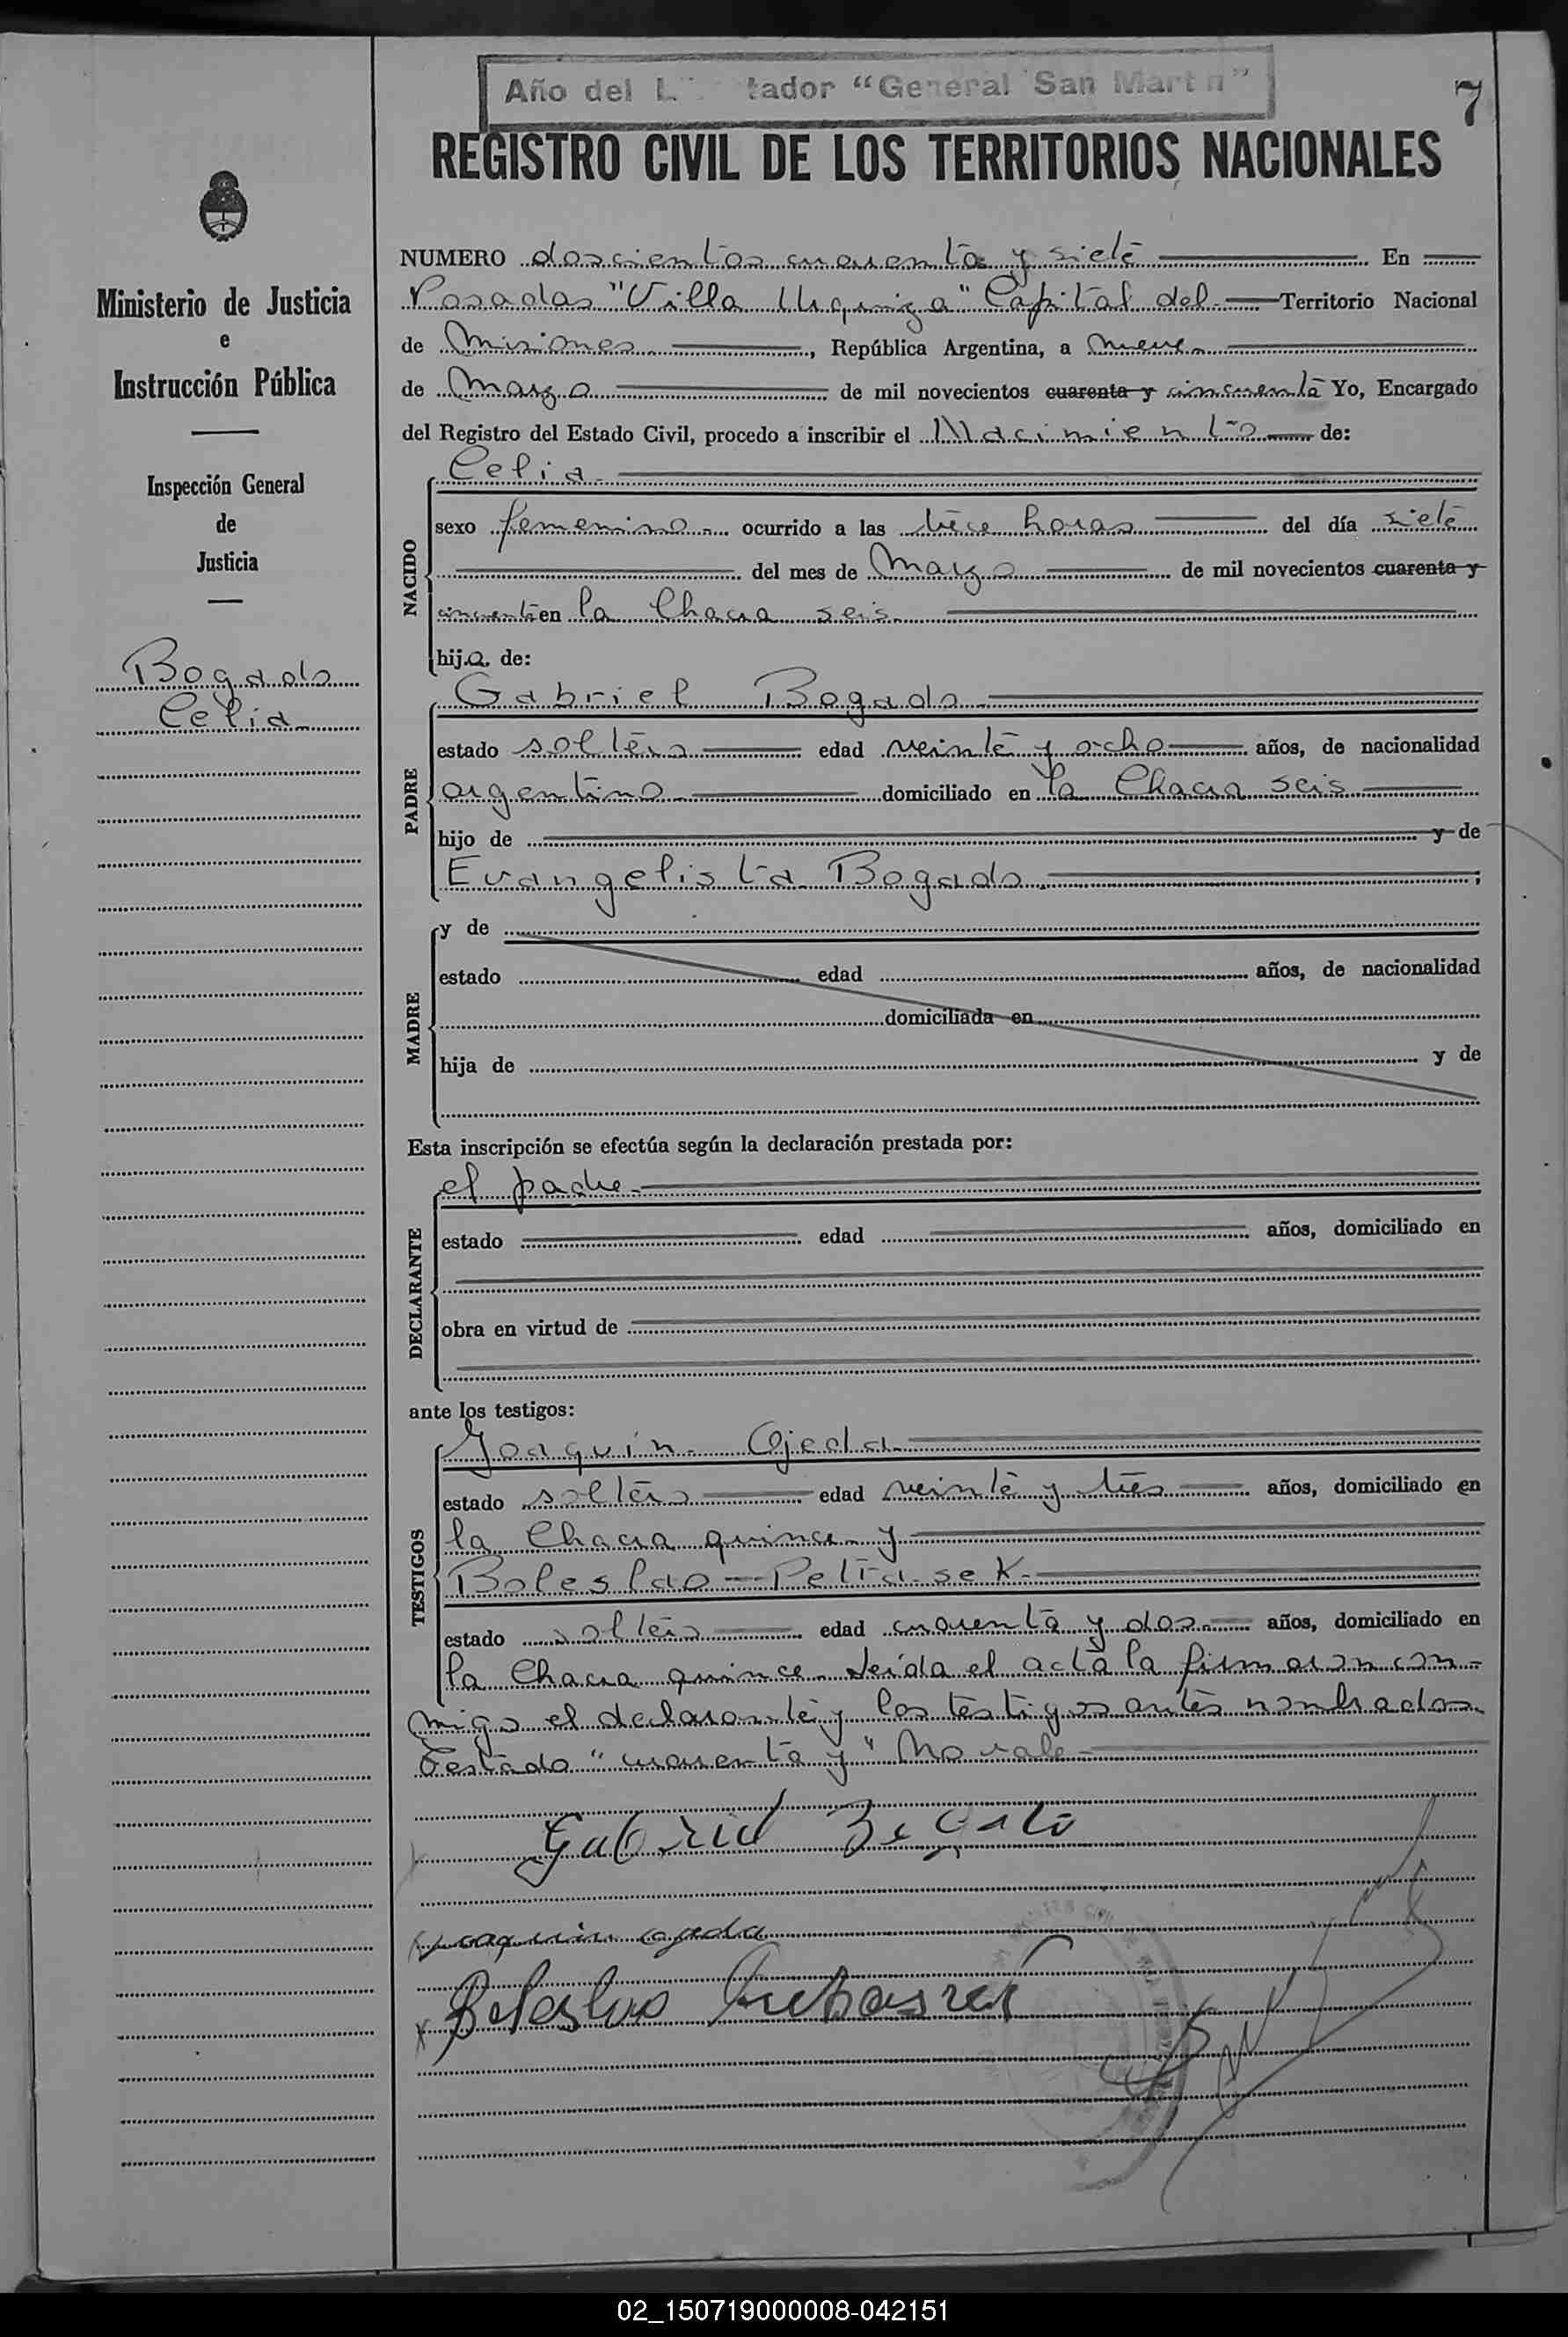 Año del L tador "General San Martín"
7
REGISTRO CIVIL DE LOS TERRITORIOS NACIONALES
Ministerio de Justicia
e
Instrucción Pública
Inspección General
de
Justicia
Bogado
Celia
NUMERO doscientos cuarenta y siete En
Posadas "Villa Urquiza" Capital del Territorio Nacional
de Misiones, República Argentina, a nueve
de Marzo de mil novecientos cuarenta y cincuenta Yo, Encargado
del Registro del Estado Civil, procedo a inscribir el Nacimiento de:
NACIDO
Celia
sexo femenino ocurrido a las trece horas del día siete
del mes de Marzo de mil novecientos cuarenta y
cincuenta en la Chacra seis
hija de:
PADRE
Gabriel Bogado
estado soltero edad veinte y ocho años, de nacionalidad
argentino domiciliado en la Chacra seis
hijo de y de
Evangelista Bogado ;
MADRE
y de
estado edad años, de nacionalidad
domiciliada en
hija de y de
Esta inscripción se efectúa según la declaración prestada por:
DECLARANTE
el padre
estado edad años, domiciliado en
obra en virtud de
ante los testigos:
TESTIGOS
Joaquín Ojeda
estado soltero edad veinte y tres años, domiciliado en
la Chacra quince y
Boleslao Petrasek
estado soltero edad cuarenta y dos años, domiciliado en
la Chacra quince. Leída el acta la firmaron con-
migo el declarante y los testigos antes nombrados.
Testado "cuarenta y" No vale
Gabriel Bogado
Joaquin ojeda
Boleslao
02_150719000008-042151